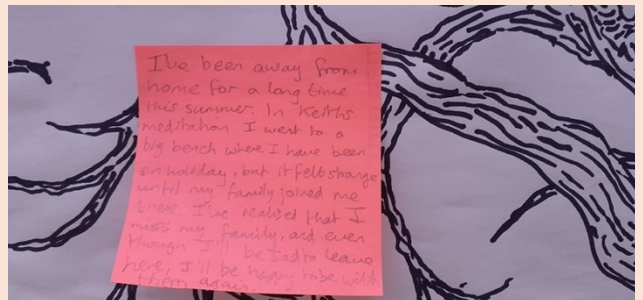 I've been away from
home for a long time
this summer. In Keiths
meditation I went to a
big beach where I have been
on holiday, but it felt strange
until my family joined me
there. I've realised that I
miss my family, and even
though I'll be sad to leave
here, I'll be happy to be with
them again.